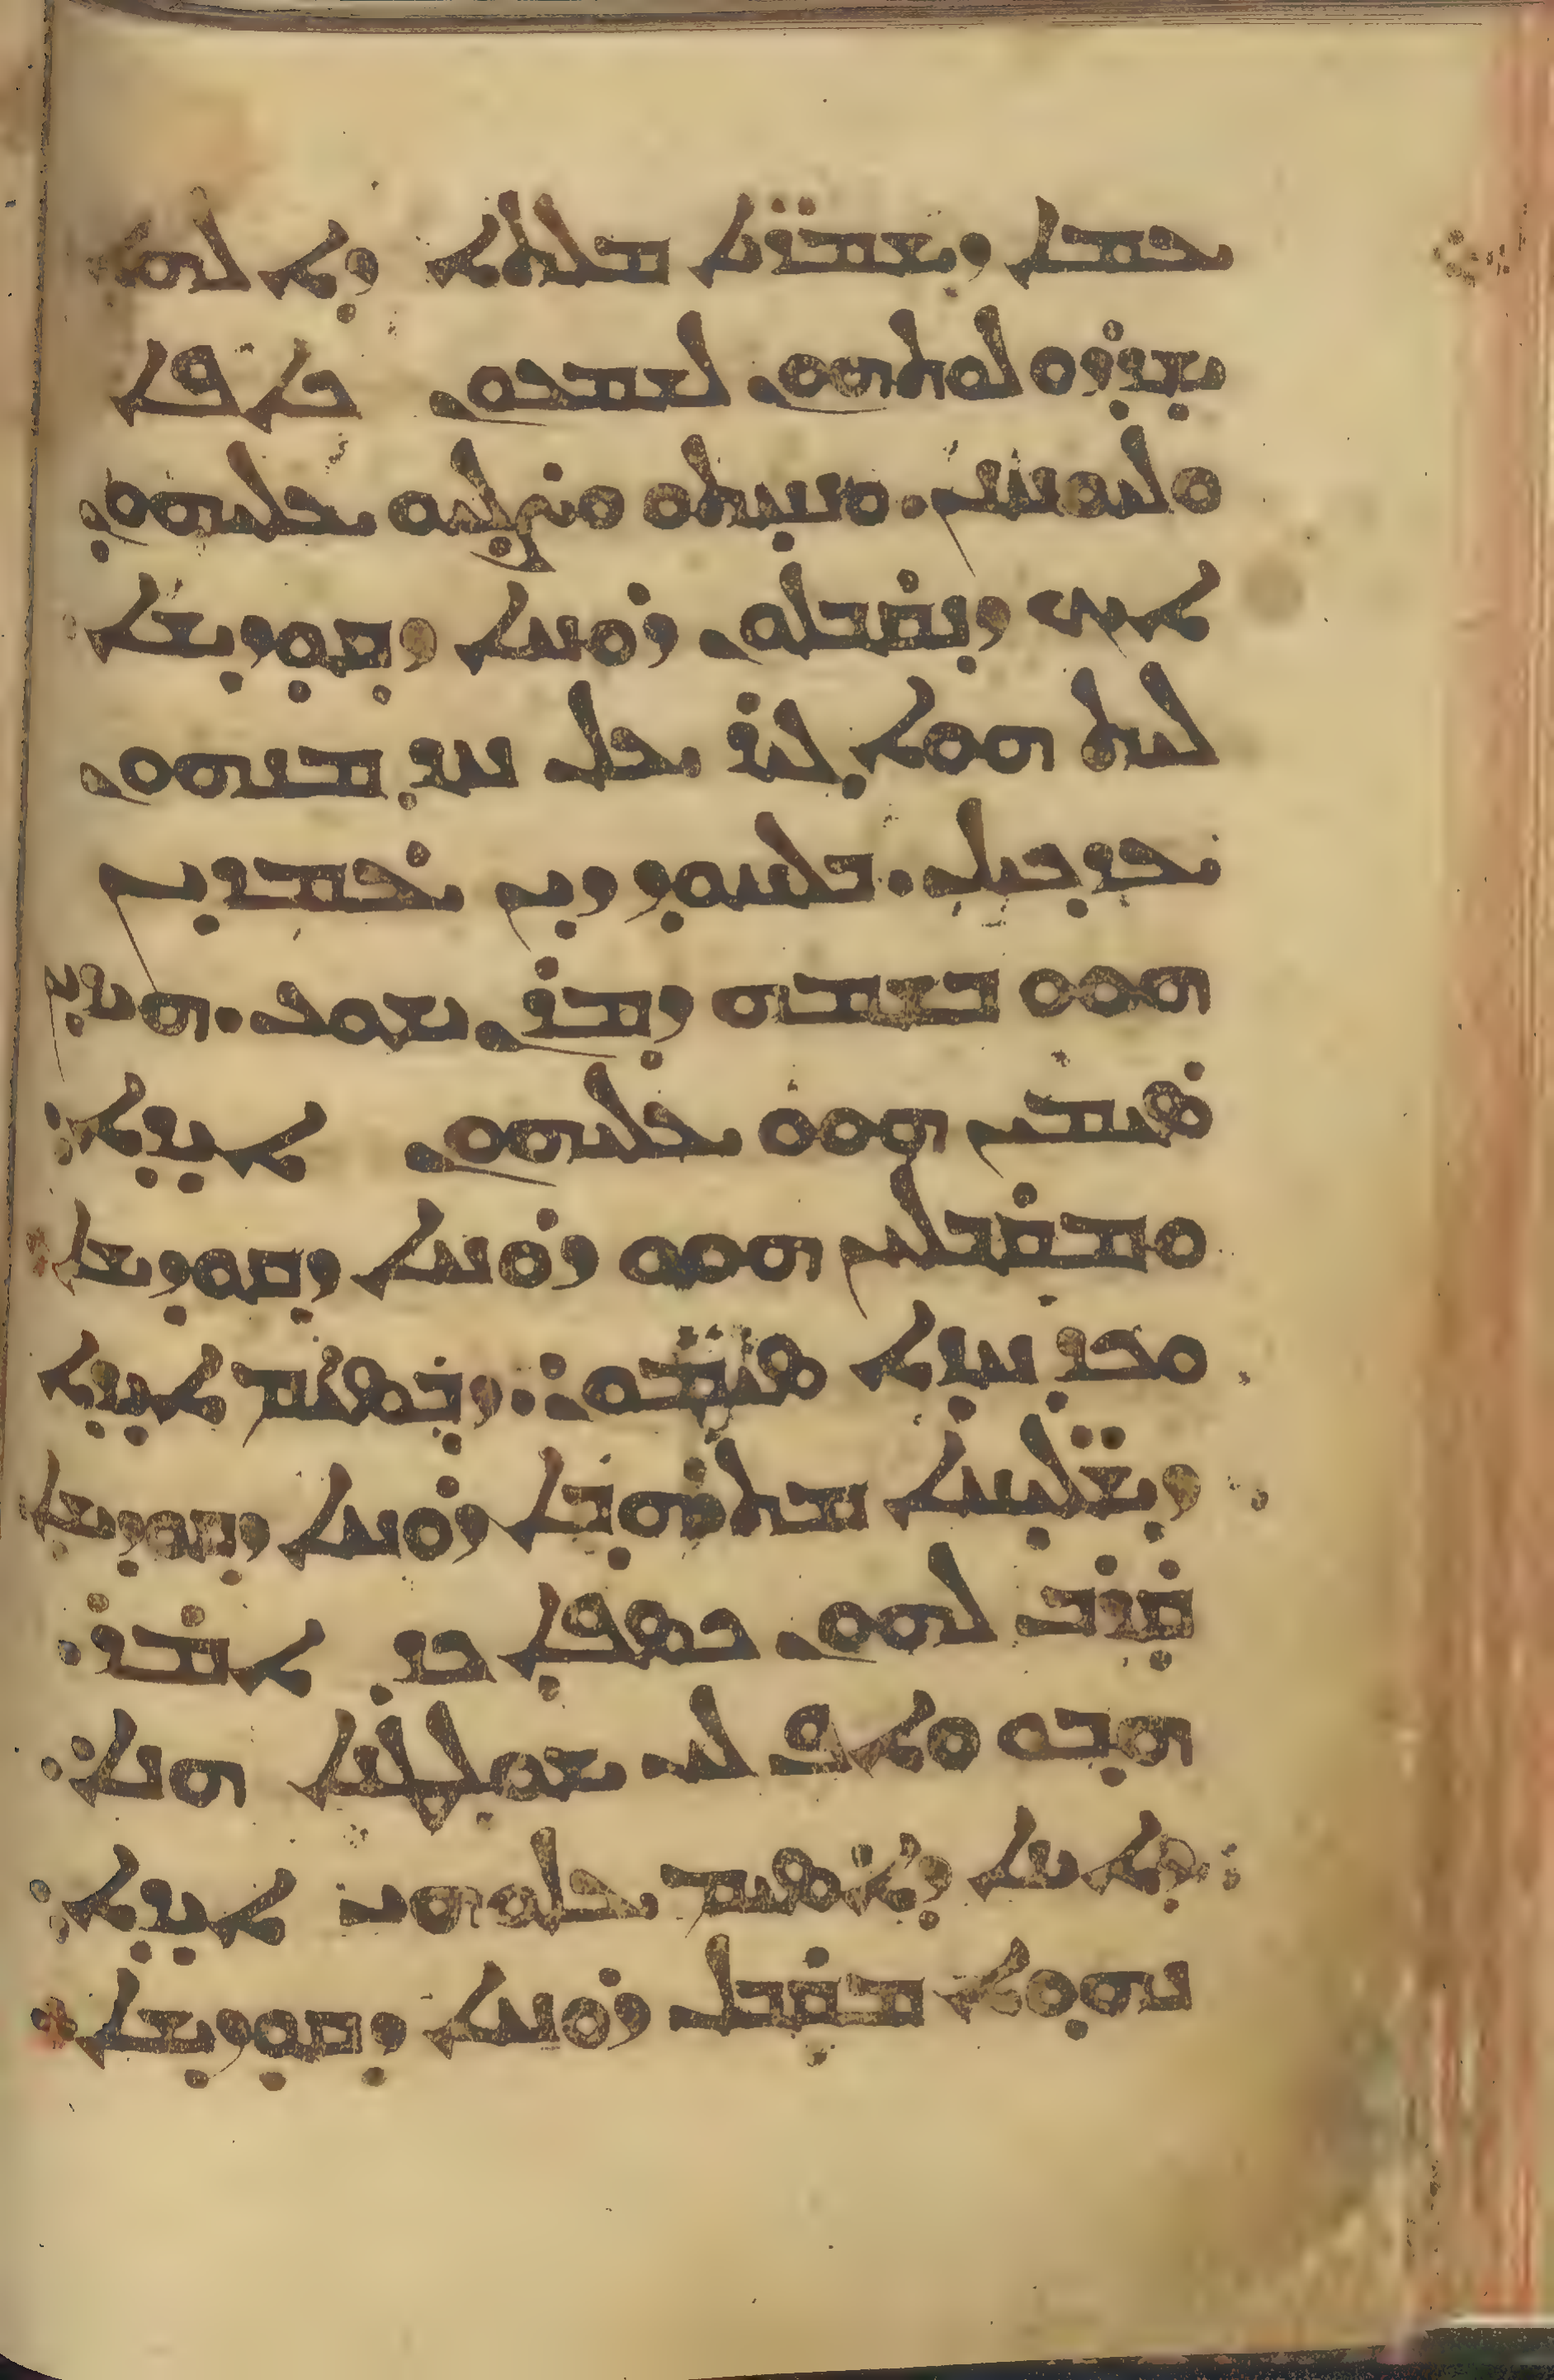 ܥܡܐ ܕܫܡܪ̈ܝܐ ܡܠܬܐ ܕܐܠܗܐ
ܫܕܪܘ ܠܘܬܗܘܢ ܠܫܡܥܘܢ ܟܐܦܐ
ܘܠܝܘܚܢܢ. ܘܢܚܬܘ ܘܨܠܝܘ ܥܠܝܗܘܢ
ܐܝܟ ܕܢܩܒܠܘܢ ܪܘܚܐ ܕܩܘܕܫܐ
ܠܝܬ ܗܘܐ ܓܝܪ ܥܠ ܚܕ ܡܢܗܘܢ
ܥܕܟܝܠ. ܒܠܚܘܕ ܕܝܢ ܥܡܝܕܝܢ
ܗܘܘ ܒܫܡܗ ܕܡܪܢ ܝܫܘܥ. ܗܝܕܝܢ
ܣܝܡܝܢ ܗܘܘ ܥܠܝܗܘܢ ܐܝܕܐ:
ܘܡܩܒܠܝܢ ܗܘܘ ܪܘܚܐ ܕܩܘܕܫܐ
ܘܟܕ ܚܙܐ ܣܝܡܘܢ: ܕܒܣܝܡ ܐܝܕܐ
ܕܫܠܝ̈ܚܐ ܡܬܝܗܒܐ ܪܘܚܐ ܕܩܘܕܫܐ
ܩܪܒ ܠܗܘܢ ܟܣܦܐ ܟܕ ܐܡܪ:
ܗܒܘ ܘܐܦ ܠܝ ܫܘܠܛܢܐ ܗܢܐ:
ܕܐܝܢܐ ܕܐܣܝܡ ܥܠܘܗܝ ܐܝܕܐ:
ܢܗܘܐ ܡܩܒܠ ܪܘܚܐ ܕܩܘܕܫܐ